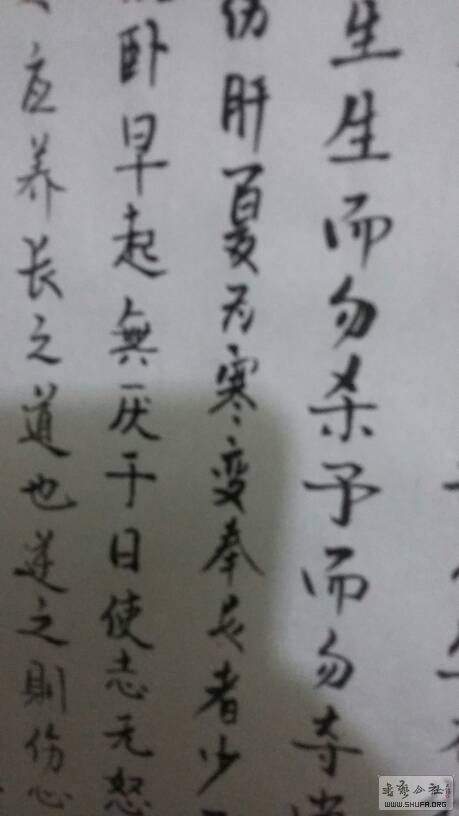 生生而勿杀予而勿夺
伤肝夏为寒变奉长者少
卧早起無厌于日使志无怒
应养长之道也逆之則伤心
书艺公社
WWW.SHUFA.ORG